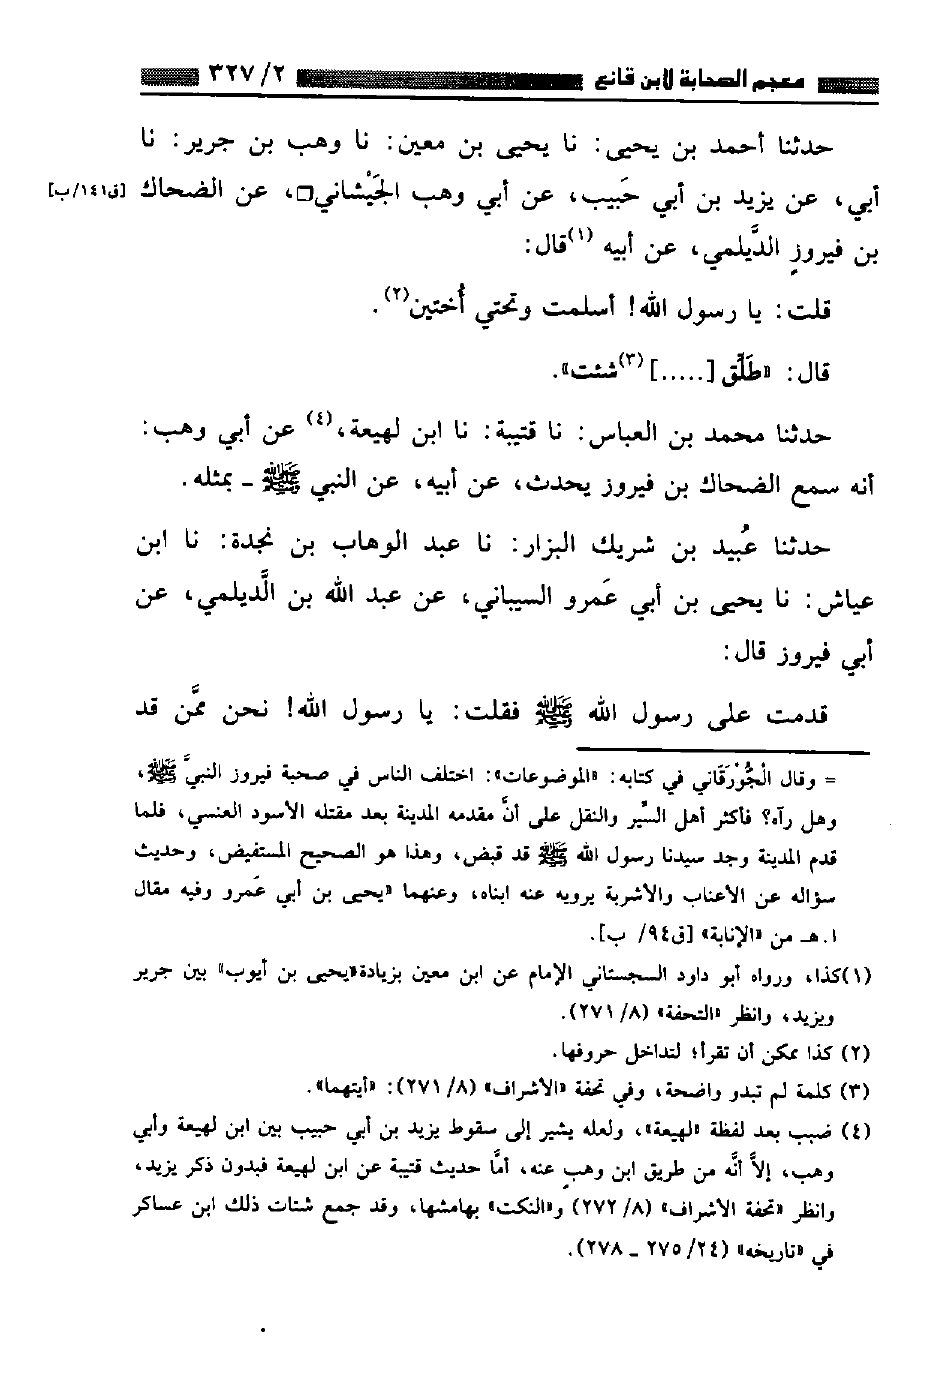 معجم الصحابة لابن قانع ٢/ ٣٢٧
حدثنا أحمد بن يحيى: نا يحيى بن معين: نا وهب بن جرير: نا
أبي، عن يزيد بن أبي حَبيب، عن أبي وهب الجَيْشاني□، عن الضحاك [ق١٤١/ب]
بن فيروزٍ الدَّيلمي، عن أبيه (١)قال:
قلت: يا رسول الله! أسلمت وتحتي أُختين(٢).
قال: «طَلِّق [.....] (٣)شئت».
حدثنا محمد بن العباس: نا قتيبة: نا ابن لهيعة،(٤) عن أبي وهب:
أنه سمع الضحاك بن فيروز يحدث، عن أبيه، عن النبي ﷺ - بمثله.
حدثنا عُبيد بن شريك البزار: نا عبد الوهاب بن نجدة: نا ابن
عياش: نا يحيى بن أبي عَمرو السيباني، عن عبد الله بن الَّديلمي، عن
أبي فيروز قال:
قدمت على رسول الله ﷺ فقلت: يا رسول الله! نحن ممَّن قد
= وقال الْجُوْرَقاني في كتابه: «الموضوعات»: اختلف الناس في صحبة فيروز النبيَّ ﷺ،
وهل رآه؟ فأكثر أهل السِّير والنقل على أنَّ مقدمه المدينة بعد مقتله الأسود العنسي، فلما
قدم المدينة وجد سيدنا رسول الله ﷺ قد قبض، وهذا هو الصحيح المستفيض، وحديث
سؤاله عن الأعناب والأشربة يرويه عنه ابناه، وعنهما «يحيى بن أبي عَمرو وفيه مقال
ا.هـ من «الإنابة» [ق٩٤/ ب].
(١)كذا، ورواه أبو داود السجستاني الإمام عن ابن معين بزيادة«يحيى بن أيوب» بين جرير
ويزيد، وانظر «التحفة» (٨/ ٢٧١).
(٢) كذا يمكن أن تقرأ؛ لتداخل حروفها.
(٣) كلمة لم تبدو واضحة، وفي تحفة «الأشراف» (٨/ ٢٧١): «أيتهما».
(٤) ضبب بعد لفظة «لهيعة»، ولعله يشير إلى سقوط يزيد بن أبي حبيب بين ابن لهيعة وأبي
وهب، إلاَّ أنَّه من طريق ابن وهبٍ عنه، أمَّا حديث قتيبة عن ابن لهيعة فبدون ذكر يزيد،
وانظر «تحفة الأشراف» (٨/ ٢٧٢) و«النكت» بهامشها، وقد جمع شتات ذلك ابن عساكر
في «تاريخه» (٢٤/ ٢٧٥ - ٢٧٨).